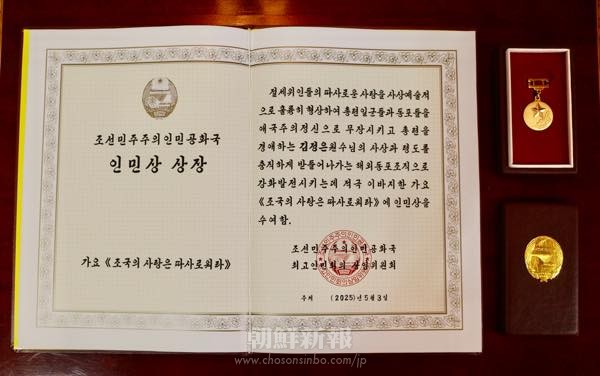 조선민주주의인민공화국
인민상 상장
가요 《조국의 사랑은 따사로워라》
절세위인들의 따사로운 사랑을 사상예술적
으로 훌륭히 형상하여 총련일군들과 동포들을
애국주의정신으로 무장시키고 총련을
경애하는 김정은원수님의 사상과 령도를
충직하게 받들어나가는 해외동포조직으로
강화발전시키는데 적극 이바지한 가요
《조국의 사랑은 따사로워라》에 인민상을
수여함.
조선민주주의인민공화국
최고인민회의 상임위원회
주체 (2025)년 5월 3일
朝鮮新報
www.chosonsinbo.com/jp